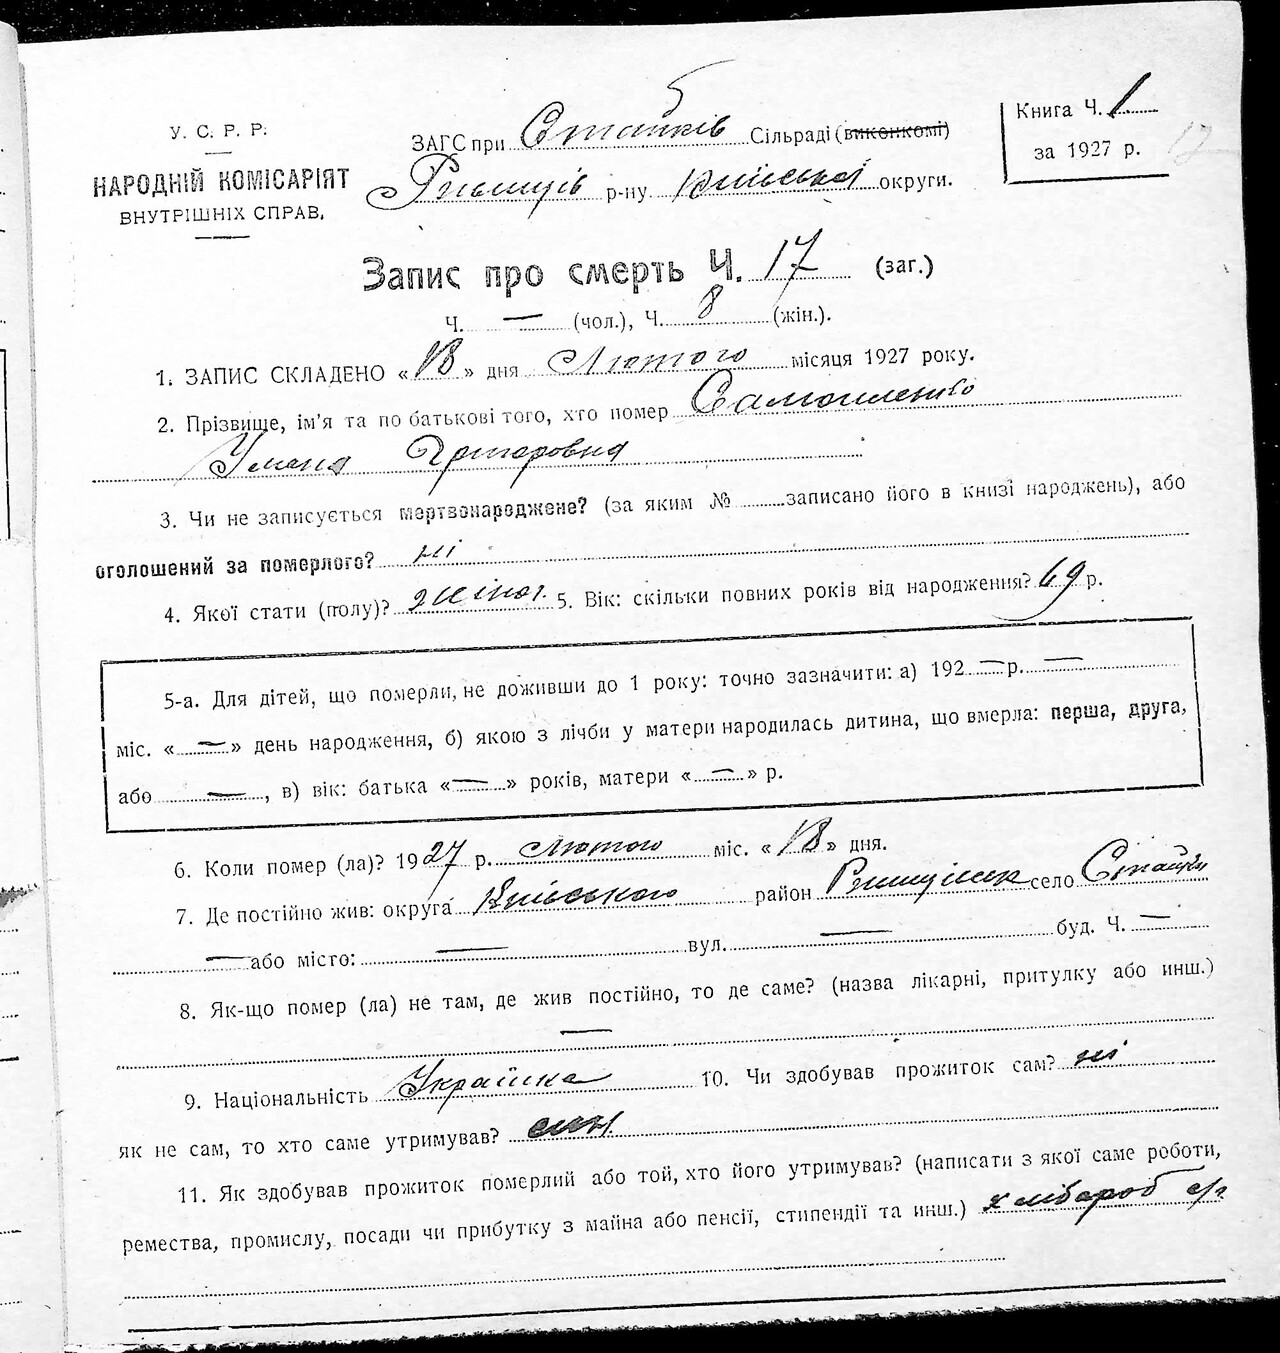 У. С. Р. Р.
НАРОДНІЙ КОМІСАРІЯТ
ВНУТРІШНІХ СПРАВ.
ЗАГС при Стайків Сільраді (виконкомі)
р-ну Київської округи.
Книга Ч. 1
за 1927 р.
17
Запис про смерть Ч. 17 (заг.)
Ч. — (чол.), Ч. 8 (жін.).
1. ЗАПИС СКЛАДЕНО «18» дня Лютого місяця 1927 року.
2. Прізвище, ім'я та по батькові того, хто помер Самойленко
Уляна Григоровна
3. Чи не записується мертвонароджене? (за яким № записано його в книзі народжень), або
оголошений за померлого? ні
4. Якої статі (полу)? жіноч. 5. Вік: скільки повних років від народження? 69 р.
5-а. Для дітей, що померли, не доживши до 1 року: точно зазначити: а) 192 — р. —
міс. « — » день народження, б) якою з лічби у матери народилась дитина, що вмерла: перша, друга,
або — , в) вік: батька « — » років, матери « — » р.
6. Коли помер (ла)? 1927 р. лютого міс. «18» дня.
7. Де постійно жив: округа Київського район село Стайки
— або місто: — вул. — буд. Ч. —
8. Як-що помер (ла) не там, де жив постійно, то де саме? (назва лікарні, притулку або инш.)
—
9. Національність Українка 10. Чи здобував прожиток сам? ні
як не сам, то хто саме утримував? син
11. Як здобував прожиток померлий або той, хто його утримував? (написати з якої саме роботи,
ремества, промислу, посади чи прибутку з майна або пенсії, стипендії та инш.) хлібороб с/г